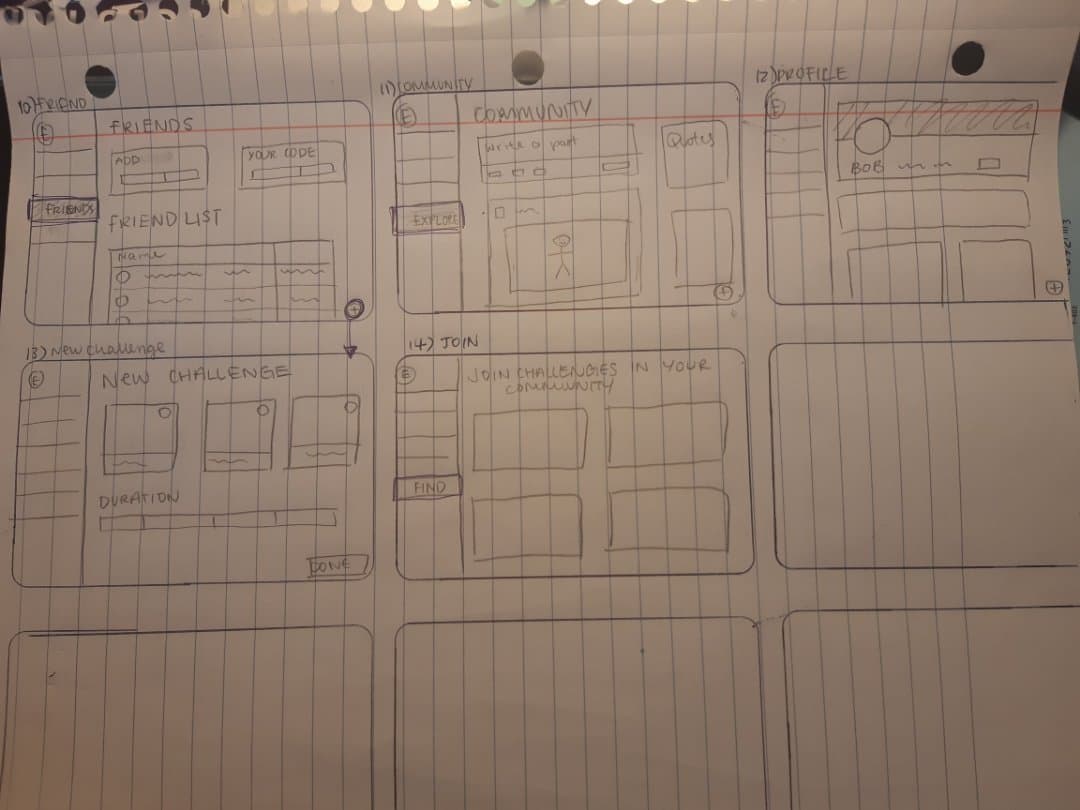 10) FRIEND
E
FRIENDS
ADD
YOUR CODE
FRIENDS
FRIEND LIST
Name
11) COMMUNITY
E
COMMUNITY
Write a post
Quotes
EXPLORE
12) PROFILE
E
BOB
13) New challenge
E
NEW CHALLENGE
DURATION
DONE
14) JOIN
E
JOIN CHALLENGES IN YOUR
COMMUNITY
FIND